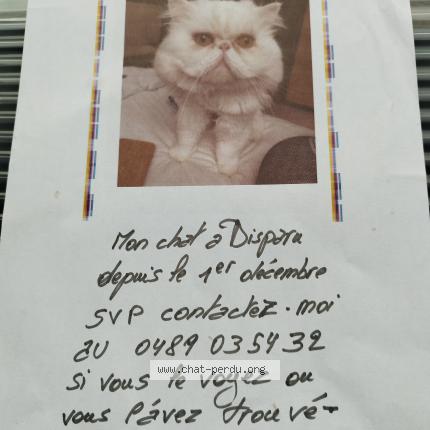 Mon chat a Disparu
depuis le 1er décembre
SVP contactez-moi
au 0489 035432
www.chat-perdu.org
si vous le voyez ou
vous l'avez trouvé-